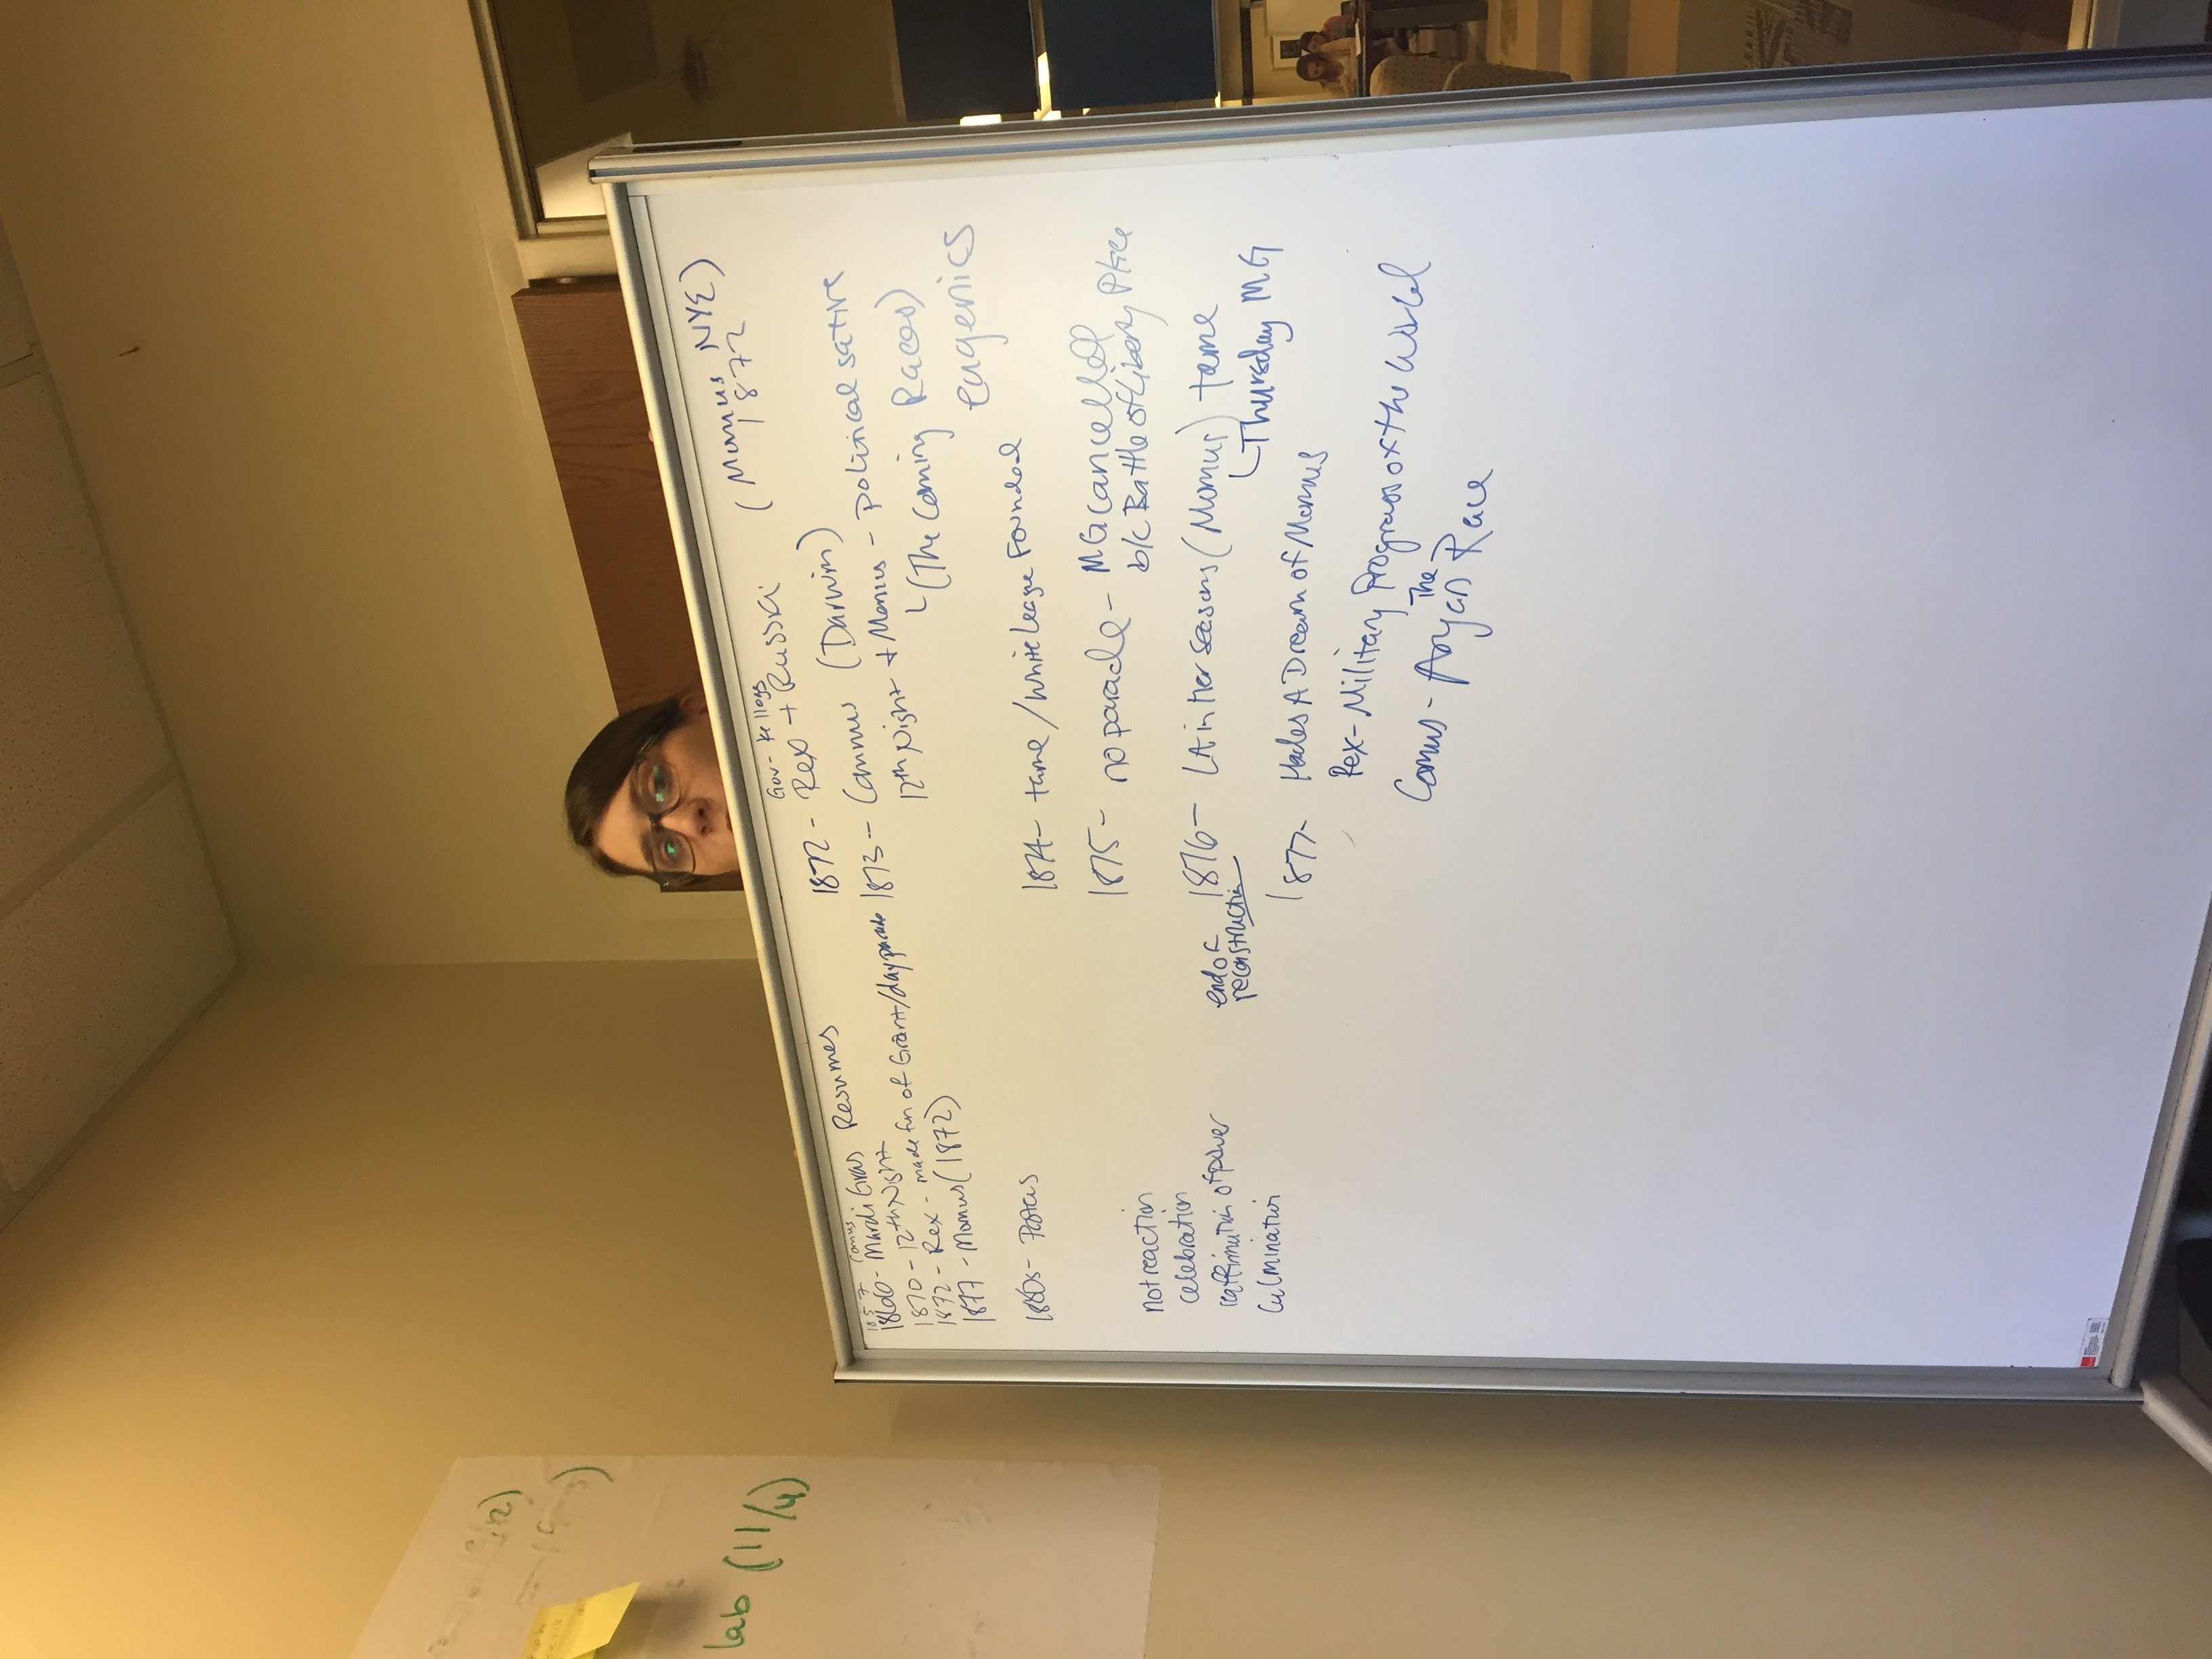 lab (11/4)
1857 Comus
1866 - Mardi Gras Resumes
1870 - 12th Night
1872 - Rex - made fun of Grant/day parade
1877 - Momus (1872)
1880s - Proteus
not reaction
celebration
reaffirmation of power
Culmination
Gov - Kellogg
1872 - Rex + Russki
(Momus NYE)
1872
1873 - Commus (Darwin)
12th Night + Momus - political satire
(The Coming Races)
eugenics
1874 - tame / White League Founded
1875 - no parade - MG cancelled
b/c Battle of Liberty Place
end of
reconstruction
1876 - LA in Her Seasons (Momus) tame
Thursday MG
1877 - Hades A Dream of Momus
Rex - Military Progress of the World
The
Comus - Aryan Race